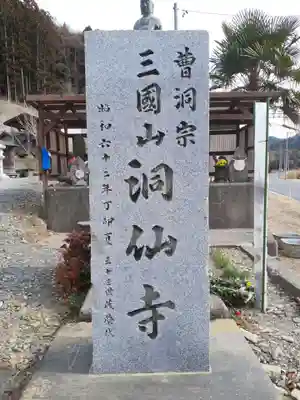 曹洞宗
三國山洞仙寺
昭和六十二年丁卯夏